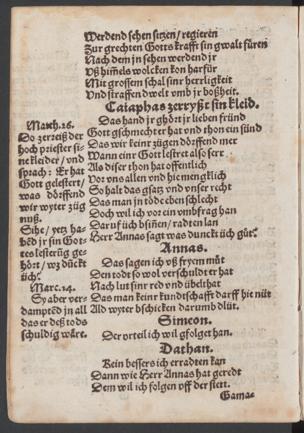 Werdend sehen sitzen / regieren
Zur grechten Gotts krafft sin gwalt füren
Nach dem jn sehen werdend jr
Uß himels wolcken kon harfür
Mit grossem schal sinr herrligkeit
Und straffen dwelt umb jr boßheit.
Caiaphas zerryßt sin kleid.
Das hand jr ghört jr lieben fründ
Gott gschmechter hat und thon ein sünd
Das wir keinr zügen dörffend mer
Wann einr Gott lestret also seer
Als diser thon hat offentlich
Vor uns allen und hie mengklich
So halt das gsatz und unser recht
Das man jn töde eben schlecht
Doch wil ich vor ein umbfrag han
Daruf üch bsinen / radten lan
Herr Annas sagt was dunckt üch güt?
Math. 26.
Do zerreiß der
hoch priester si-
ne kleider / und
sprach: Er hat
Gott gelestert /
was dörffend
wir wyter züg
nuß.
Sihe / yetz ha-
bed jr sin Got-
tes lesterüg ge-
hört / wz dückt
üch?
Marc. 14.
Sy aber ver-
damptēd jn all
das er deß tods
schuldig wäre.
Annas.
Das sagen ich uß frym müt
Den todt so wol verschuldt er hat
Nach lut sinr red und übelthat
Das man keinr kundtschafft darff hie nüt
Ald wyter bschicken darumb düt.
Simeon.
Der orteil ich wil gfolget han.
Dathan.
Kein bessers ich erradten kan
Dann wie Herr Annas hat geredt
Dem wil ich folgen uff der stett.
Gama-